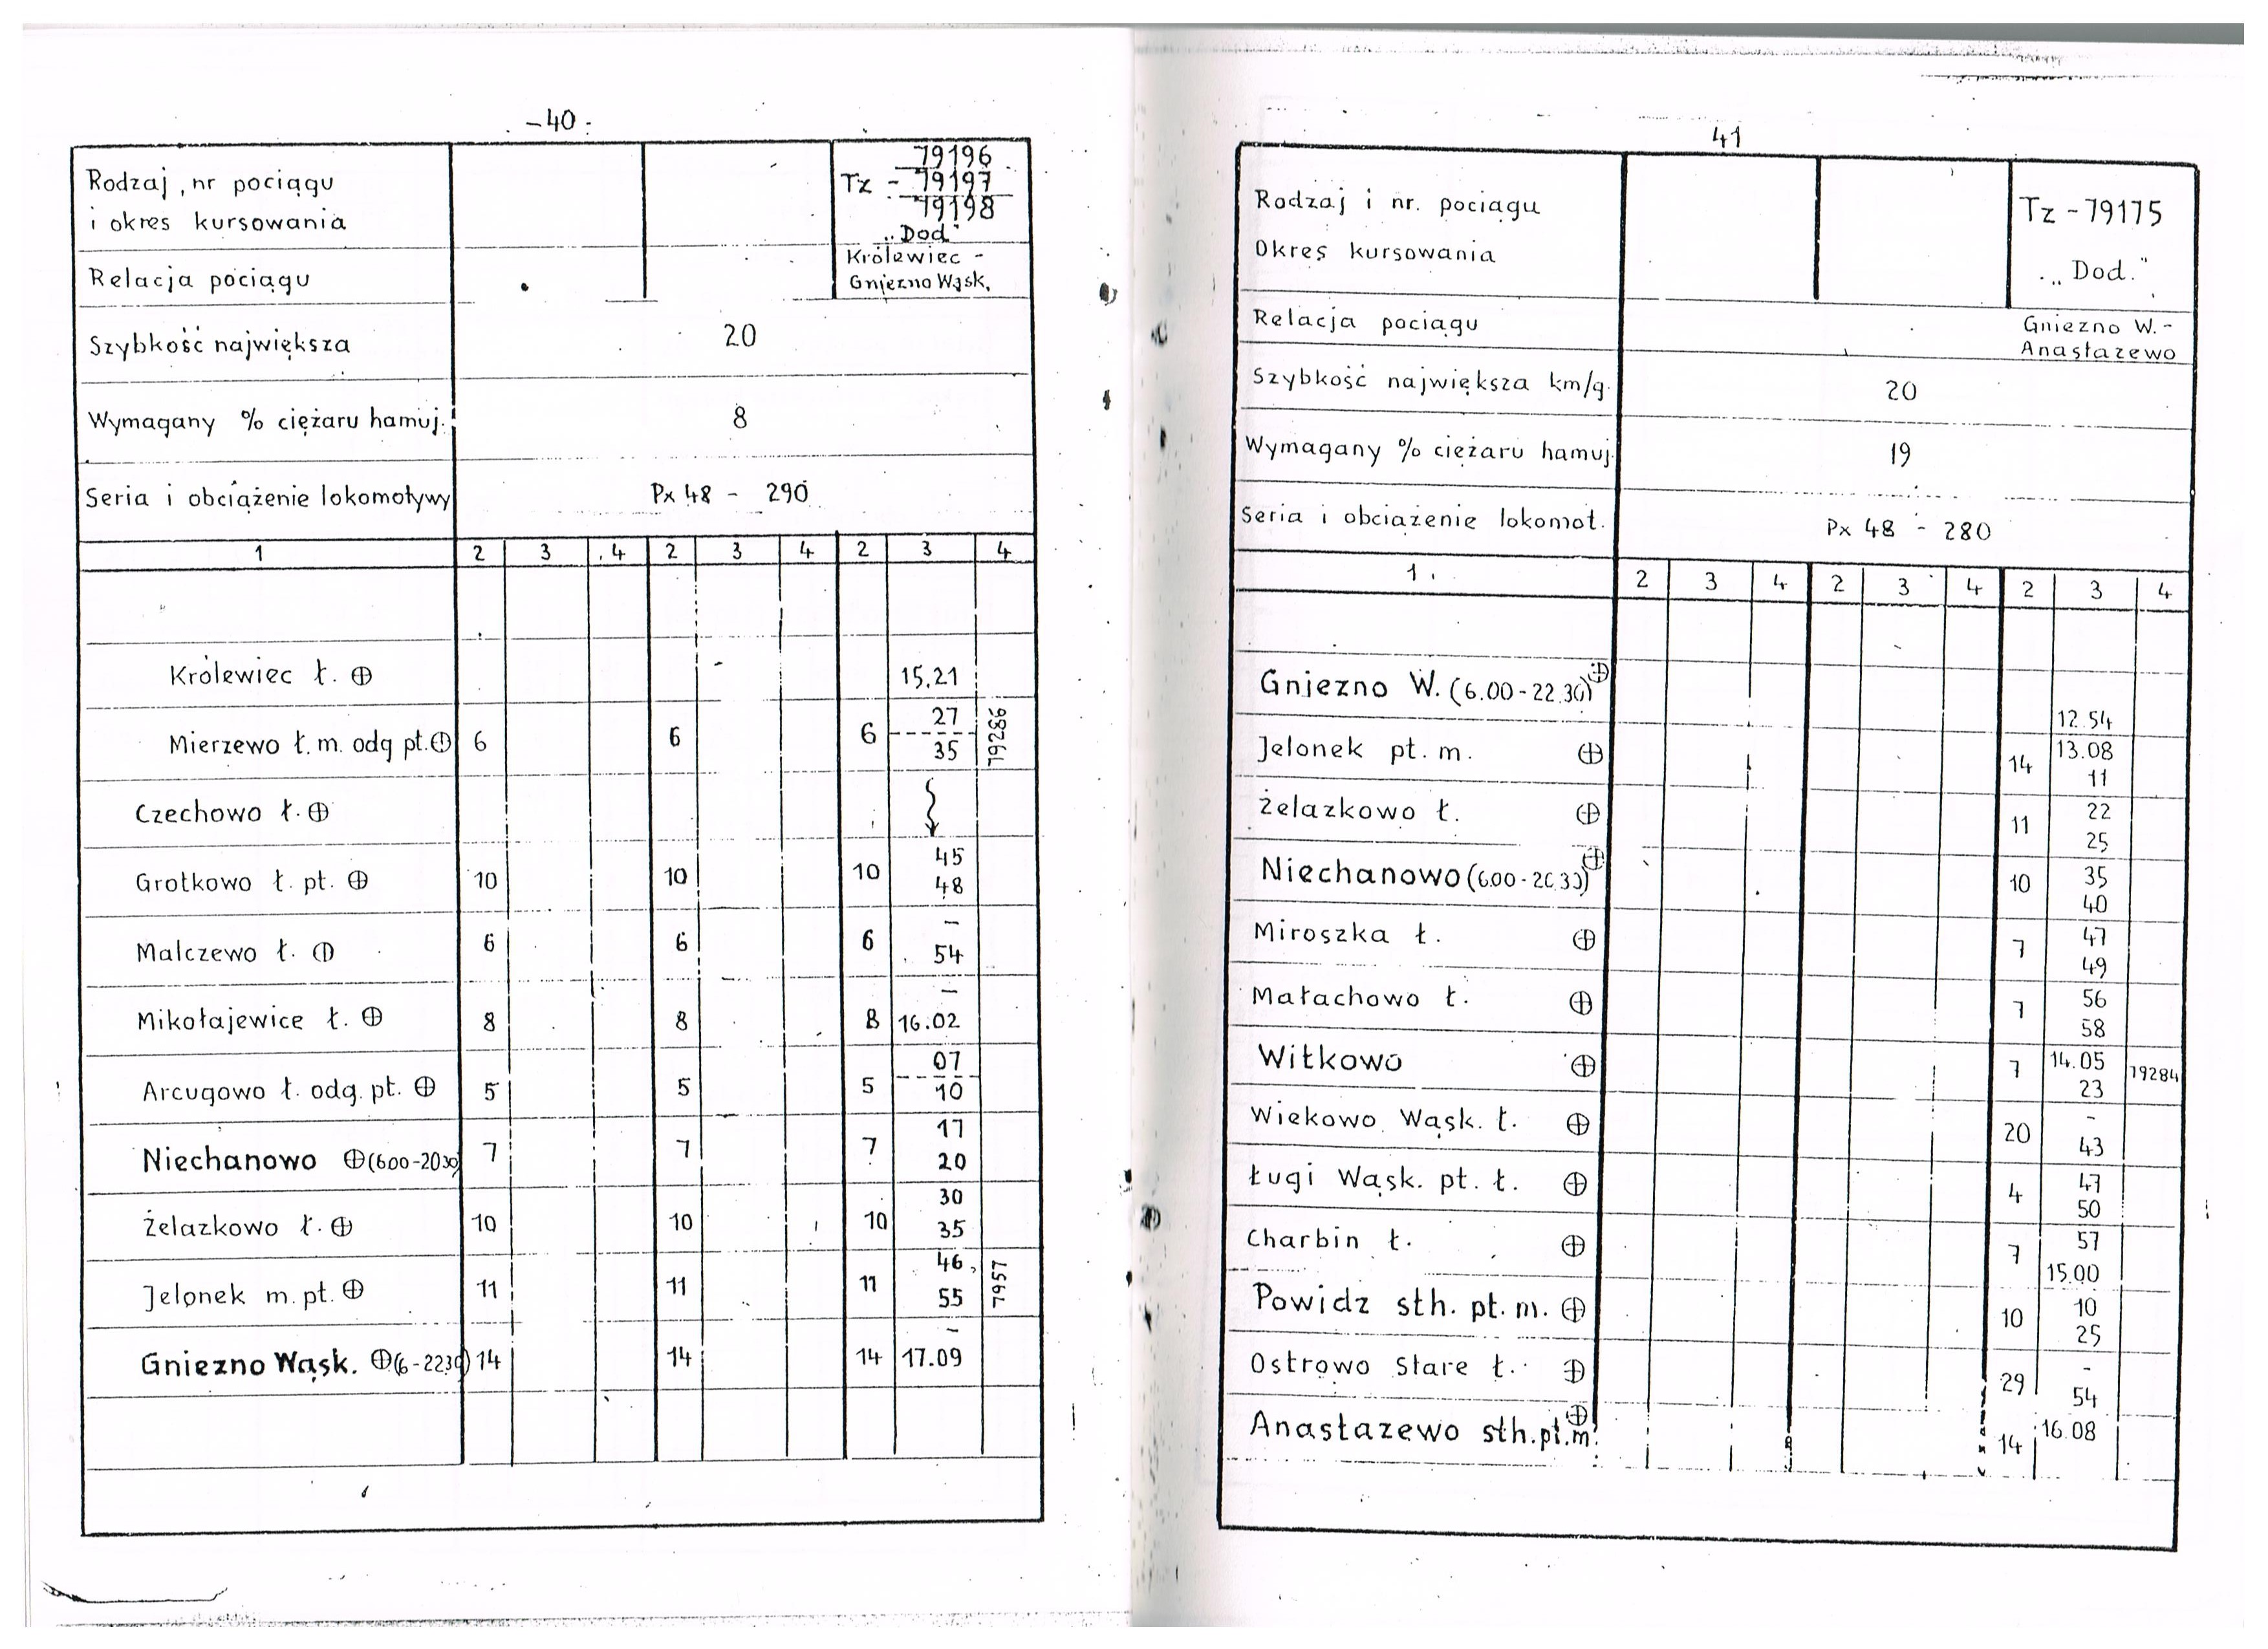 -40-
Rodzaj, nr pociągu
i okres kursowania
Tz - 79196
79197
79198
"Dod."
Relacja pociągu
Królewiec -
Gniezno Wąsk.
Szybkość największa 20
Wymagany % ciężaru hamuj. 8
Seria i obciążenie lokomotywy Px 48 - 290
1 2 3 4 2 3 4 2 3 4
Królewiec ł. ⊕ 15.21
Mierzewo ł. m. odg pt. ⊕ 6 6 6 27 35 79286
Czechowo ł. ⊕
Grotkowo ł. pt. ⊕ 10 10 10 45 48
Malczewo ł. ⊕ 6 6 6 – 54
Mikołajewice ł. ⊕ 8 8 8 – 16.02
Arcugowo ł. odg. pt. ⊕ 5 5 5 07 10
Niechanowo ⊕ (600-2030) 7 7 7 17 20
Żelazkowo ł. ⊕ 10 10 10 30 35
Jelonek m. pt. ⊕ 11 11 11 46 55 7957
Gniezno Wąsk. ⊕ (6-2230) 14 14 14 – 17.09
41
Rodzaj i nr. pociągu
Okres kursowania
Tz - 79175
"Dod."
Relacja pociągu
Gniezno W. -
Anastazewo
Szybkość największa km/g. 20
Wymagany % ciężaru hamuj. 19
Seria i obciążenie lokomot. Px 48 - 280
1. 2 3 4 2 3 4 2 3 4
Gniezno W. (6.00-22.30) ⊕ 12.54
Jelonek pt. m. ⊕ 14 13.08 11
Żelazkowo ł. ⊕ 11 22 25
Niechanowo (6.00-20.30) ⊕ 10 35 40
Miroszka ł. ⊕ 7 47 49
Małachowo ł. ⊕ 7 56 58
Witkowo ⊕ 7 14.05 23 79284
Wiekowo Wąsk. ł. ⊕ 20 – 43
Ługi Wąsk. pt. ł. ⊕ 4 47 50
Charbin ł. ⊕ 7 57 15.00
Powidz sth. pt. m. ⊕ 10 10 25
Ostrowo Stare ł. ⊕ 29 – 54
Anastazewo sth. pt. m. ⊕ 14 16.08